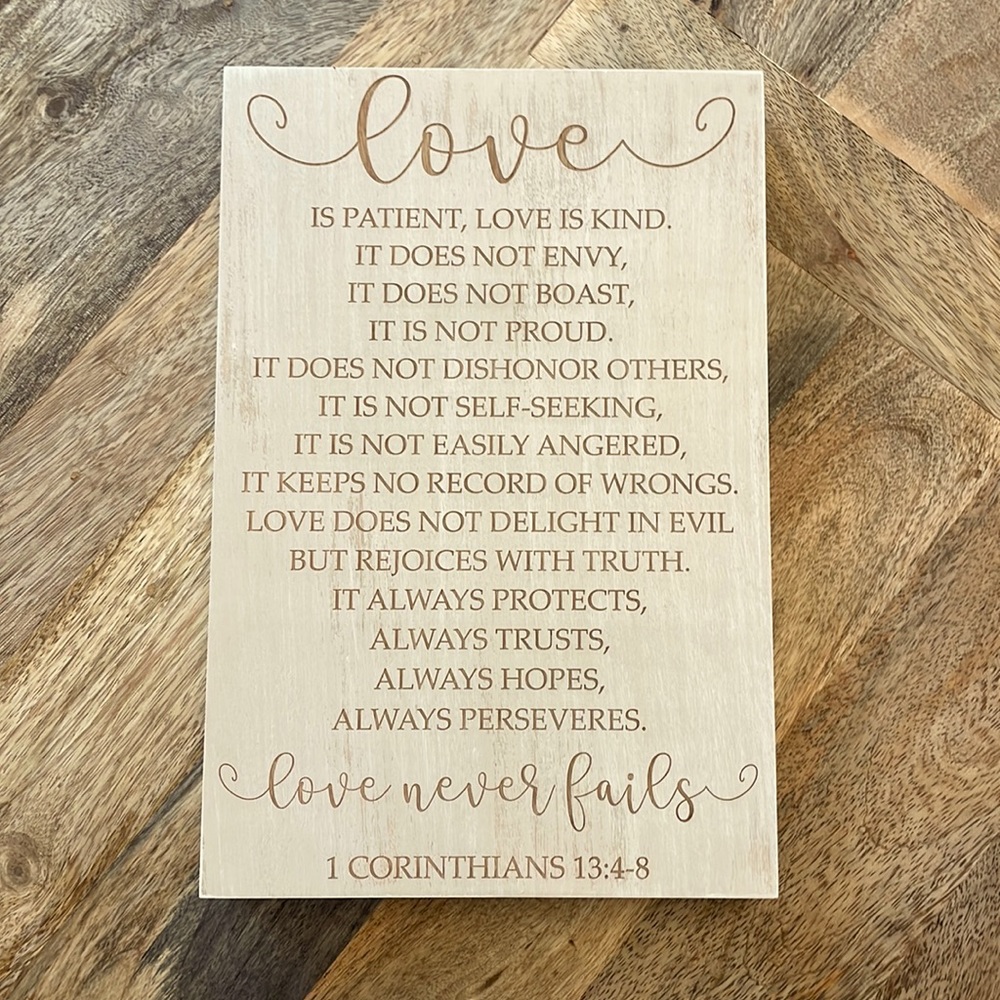 love
IS PATIENT, LOVE IS KIND.
IT DOES NOT ENVY,
IT DOES NOT BOAST,
IT IS NOT PROUD.
IT DOES NOT DISHONOR OTHERS,
IT IS NOT SELF-SEEKING,
IT IS NOT EASILY ANGERED,
IT KEEPS NO RECORD OF WRONGS.
LOVE DOES NOT DELIGHT IN EVIL
BUT REJOICES WITH TRUTH.
IT ALWAYS PROTECTS,
ALWAYS TRUSTS,
ALWAYS HOPES,
ALWAYS PERSEVERES.
love never fails
1 CORINTHIANS 13:4-8